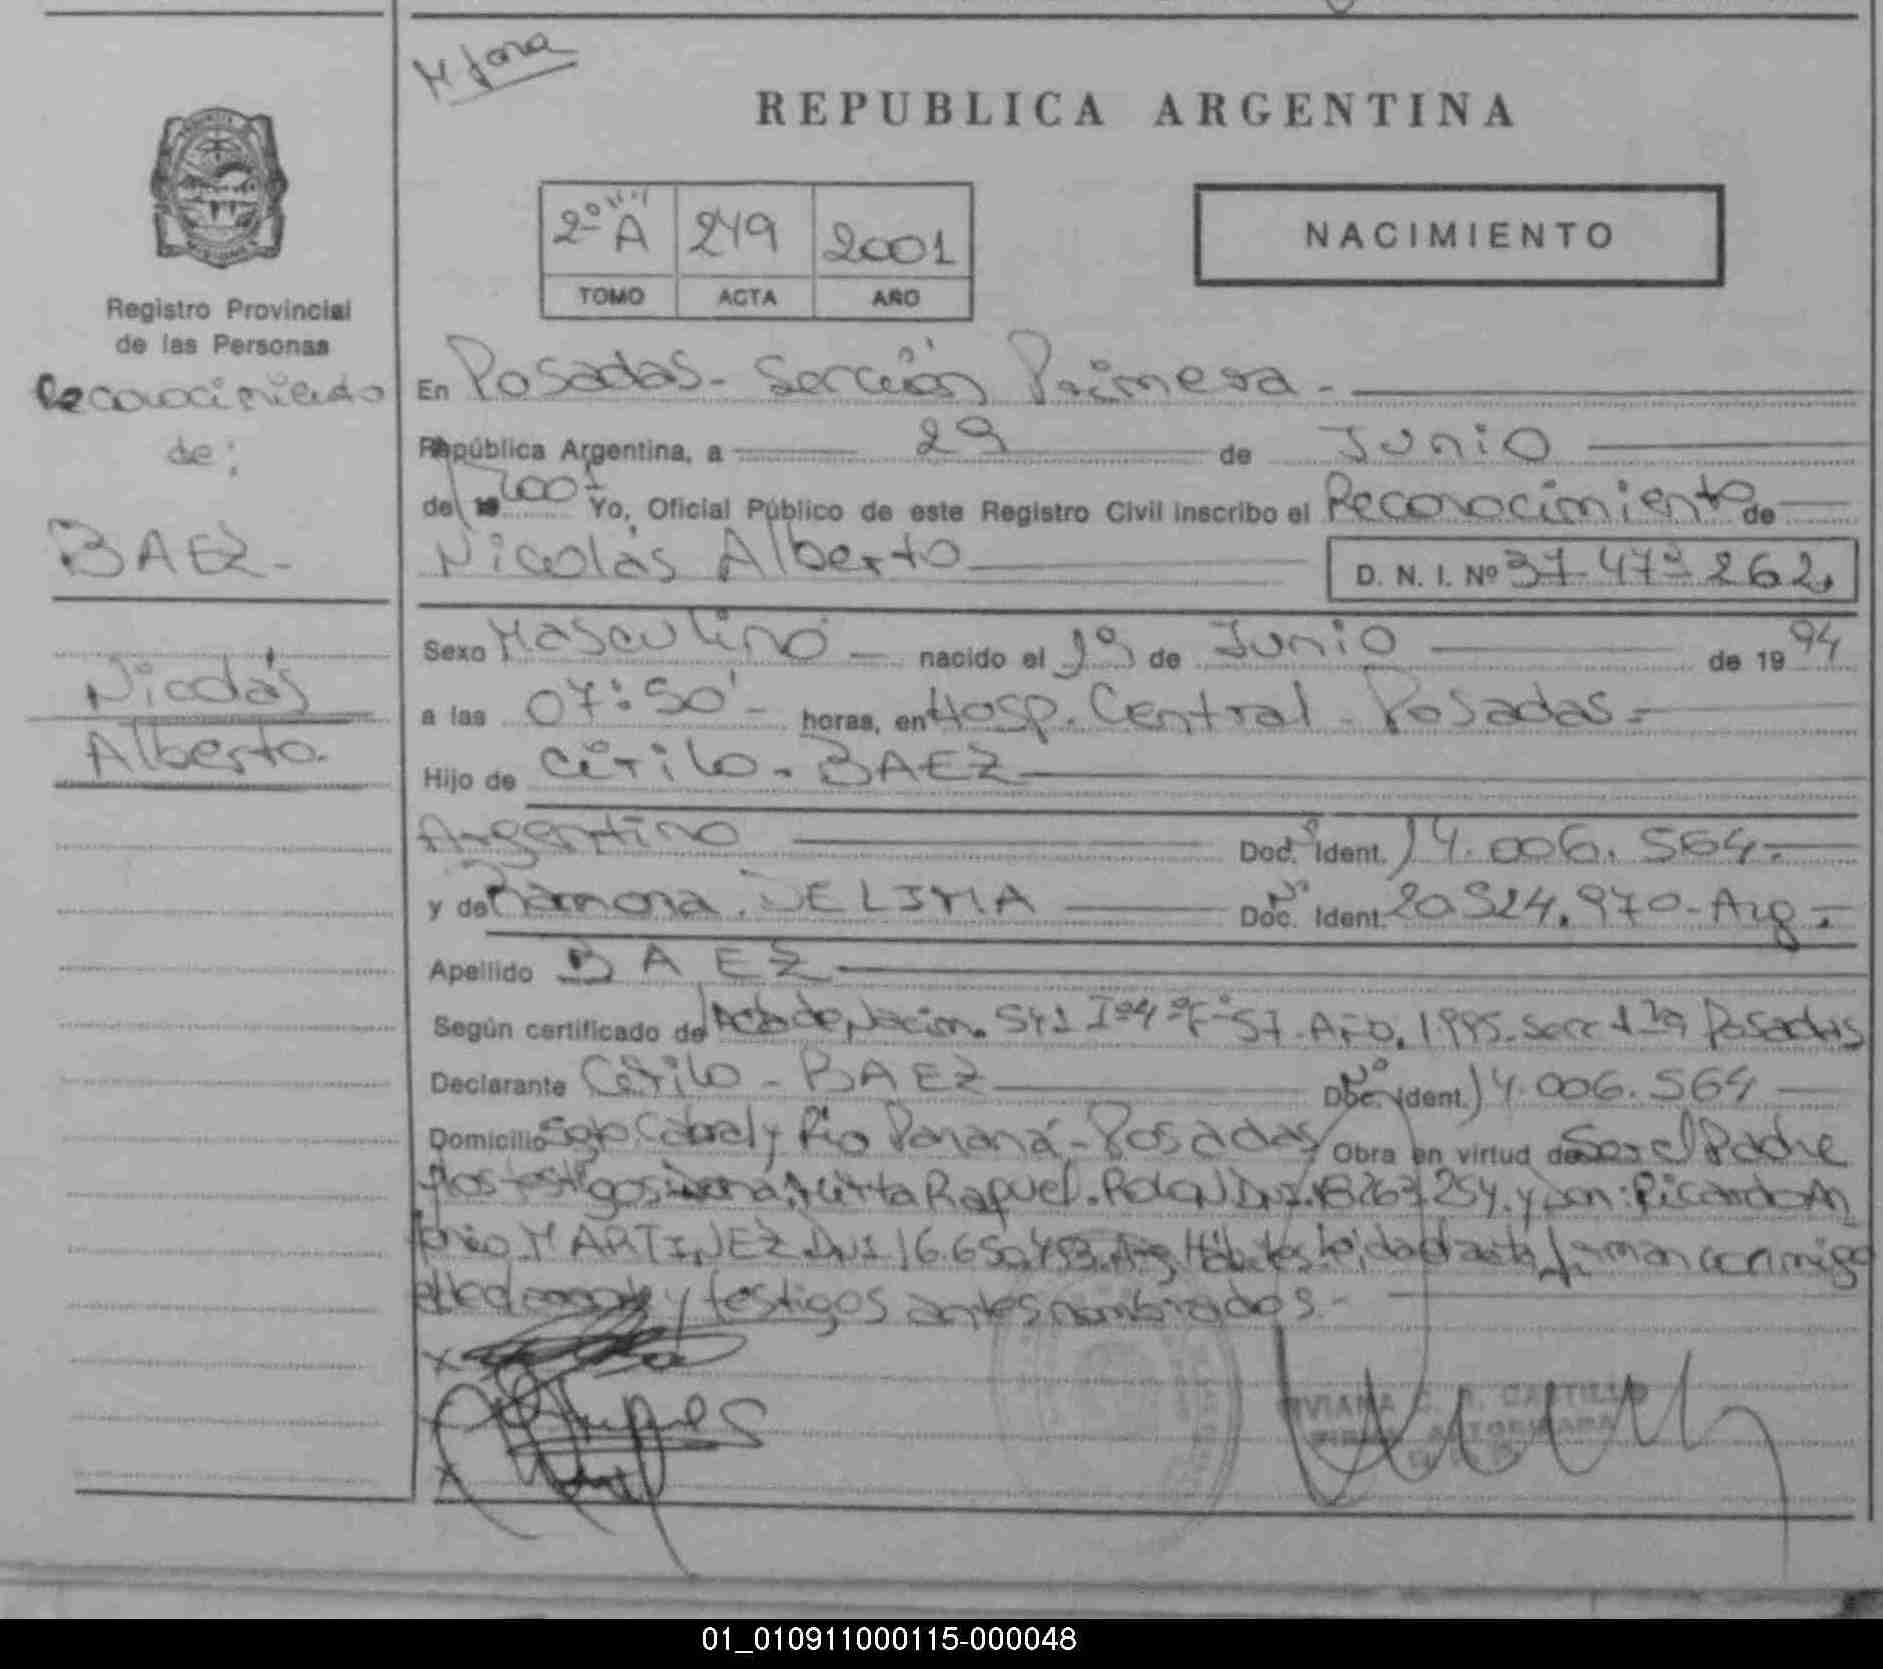 REPUBLICA ARGENTINA
2º "A" 249 2001
TOMO ACTA AÑO
NACIMIENTO
Registro Provincial
de las Personas
Reconocimiento
de:
BAEZ-
Nicolás
Alberto.
En Posadas- Sección Primera-
República Argentina, a 29 de Junio
de 19 2001 Yo, Oficial Público de este Registro Civil inscribo el Reconocimiento de
Nicolás Alberto D. N. I. Nº 37.473.262
Sexo Masculino nacido el 19 de Junio de 19 94
a las 07:50' horas, en Hosp. Central- Posadas-
Hijo de Cirilo- BAEZ
Argentino Doc. Ident. 14.006.564-
y de Ramona DELIMA Doc. Ident. 20.524.970-Arg-
Apellido BAEZ
Según certificado de Acta de Nacim. 541 Tº4º Fº57. Año. 1995. Secc 1ra Posadas
Declarante Cirilo- BAEZ Doc. Ident. 14.006.564
Domicilio Sgto. Cabral y Río Paraná- Posadas Obra en virtud de Ser el Padre
y los testigos: Mirta Raquel. DNI. 18.263.254. y Don: Ricardo An
tonio MARTINEZ DNI 16.650.453. Arg. Hábiles leída el acta firman conmigo
y testigos antes nombrados.-
VIVIANA C. R. CASTILLO
FIRMA AUTORIZADA
01_010911000115-000048